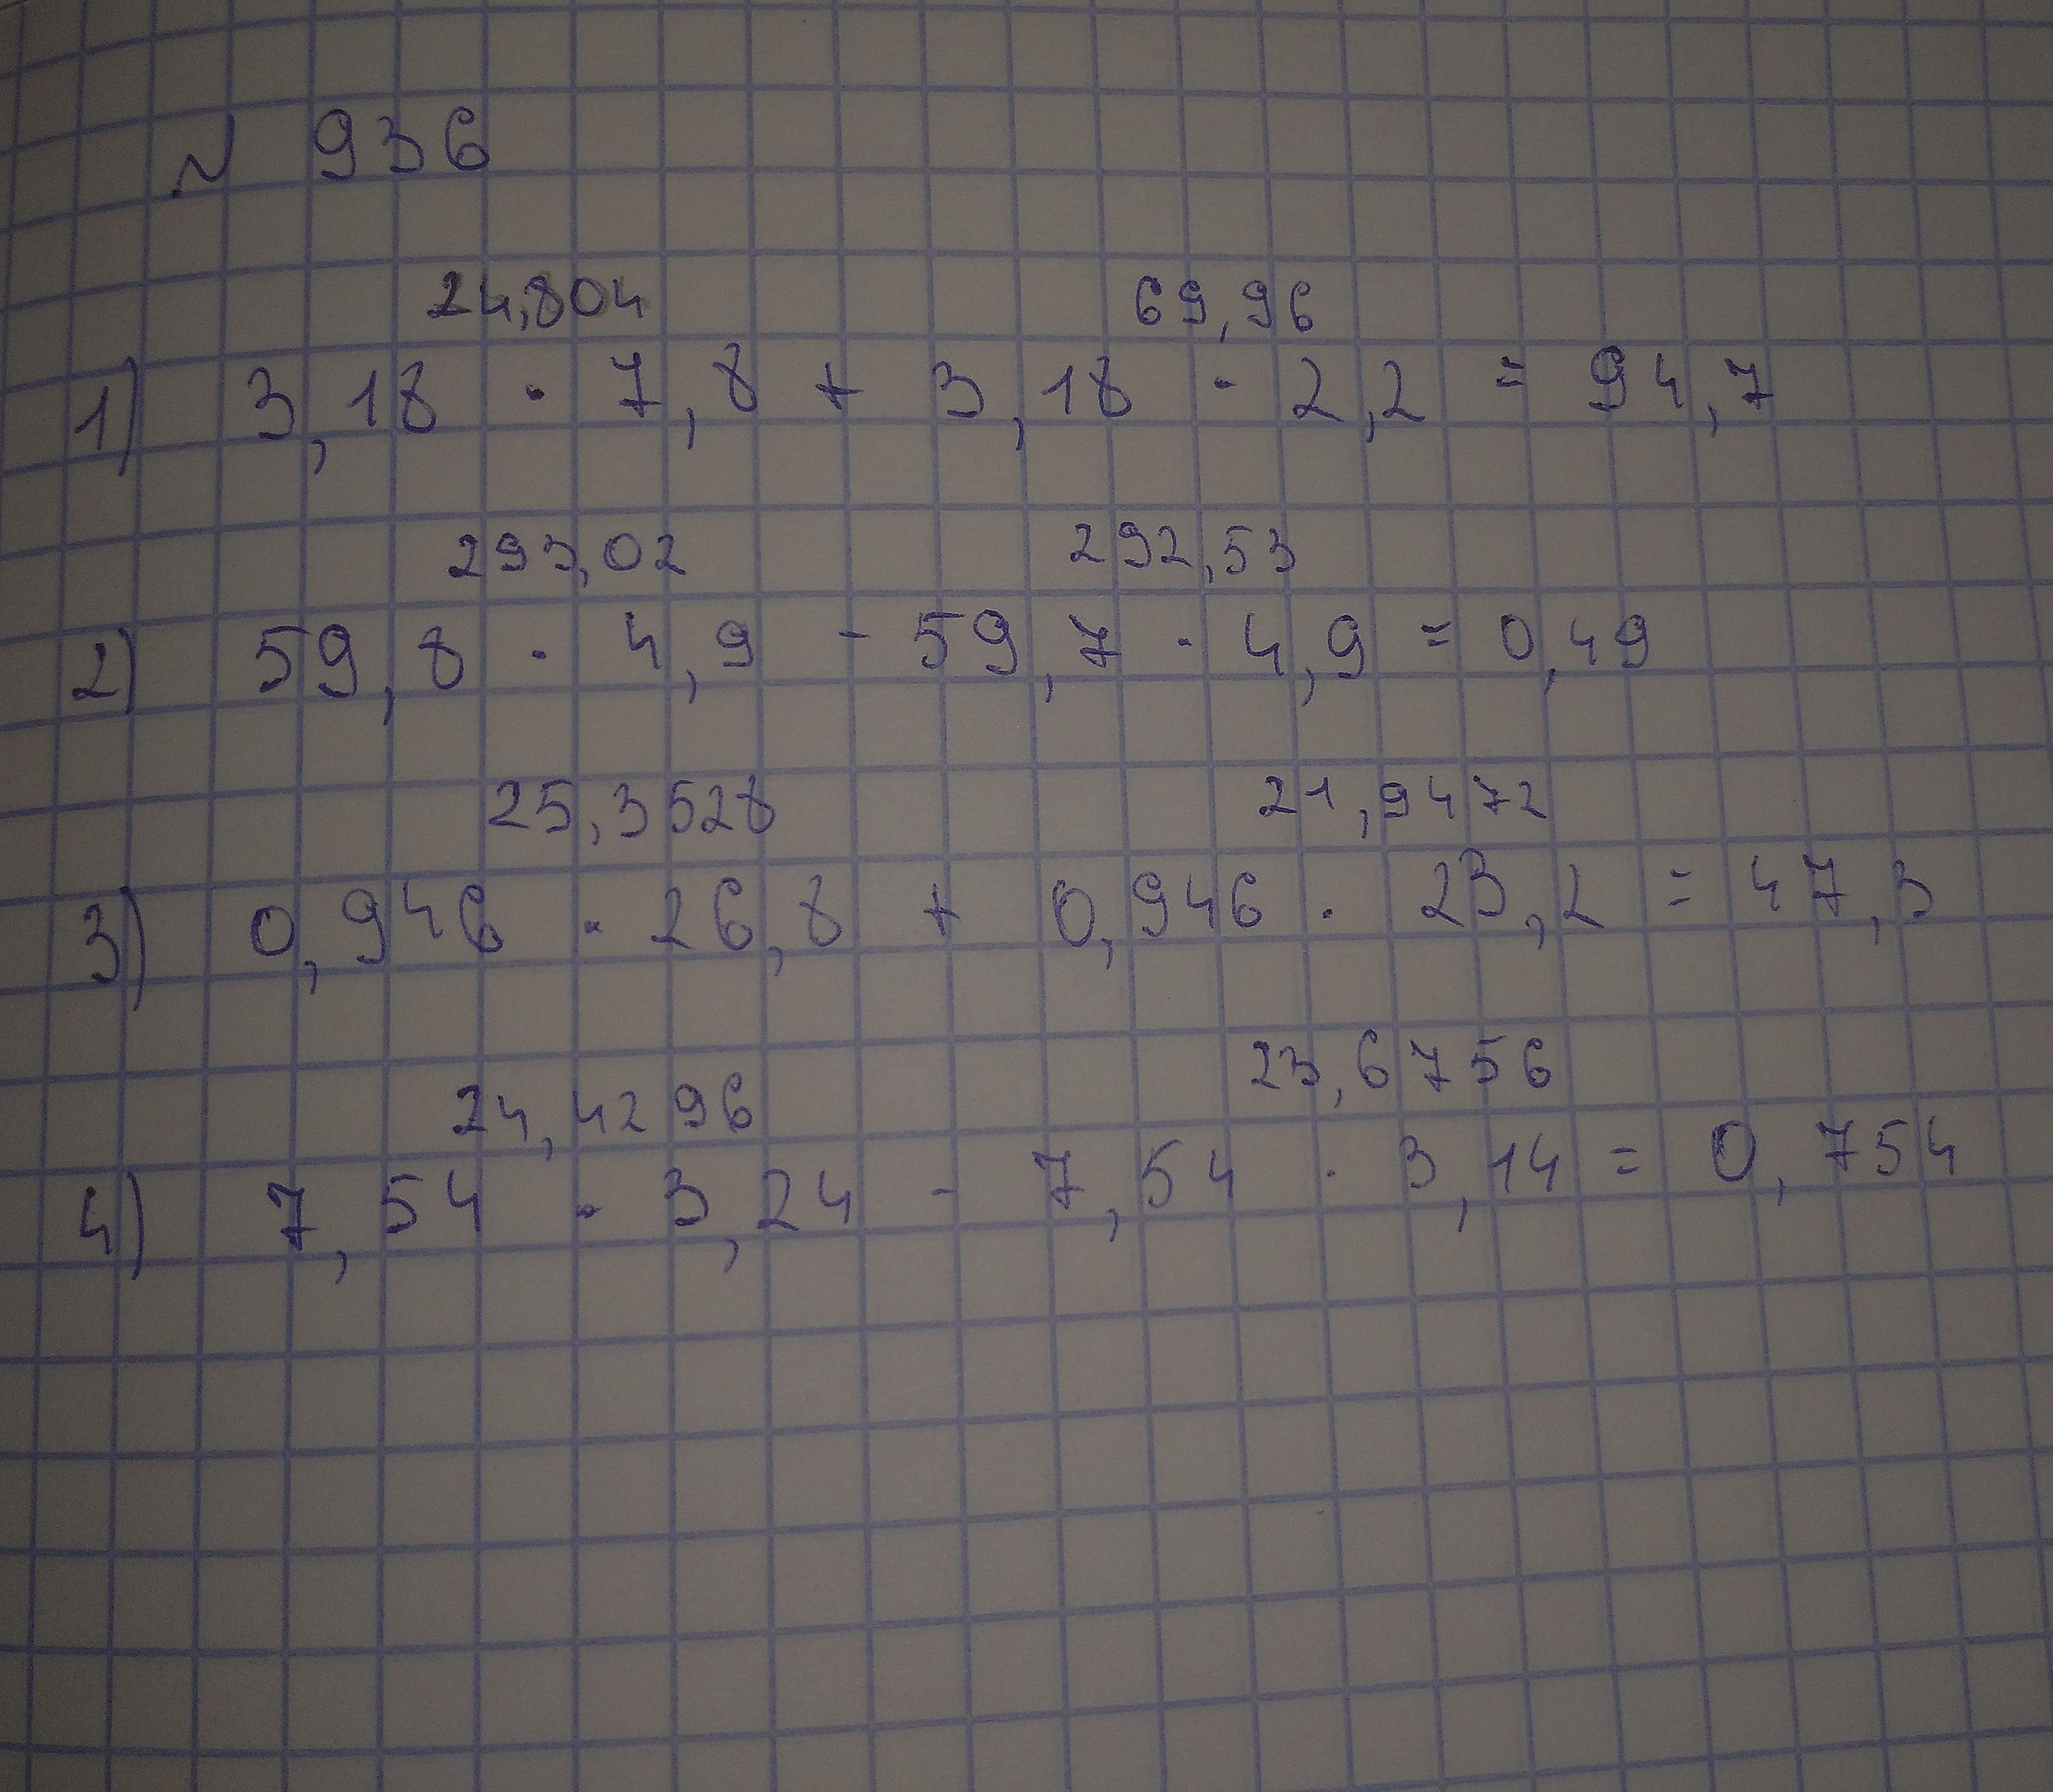 № 936
24,804 69,96
1) 3,18 · 7,8 + 3,18 · 2,2 = 94,7
293,02 292,53
2) 59,8 · 4,9 - 59,7 · 4,9 = 0,49
25,3528 21,9472
3) 0,946 · 26,8 + 0,946 · 23,2 = 47,3
24,4296 23,6756
4) 7,54 · 3,24 - 7,54 · 3,14 = 0,754